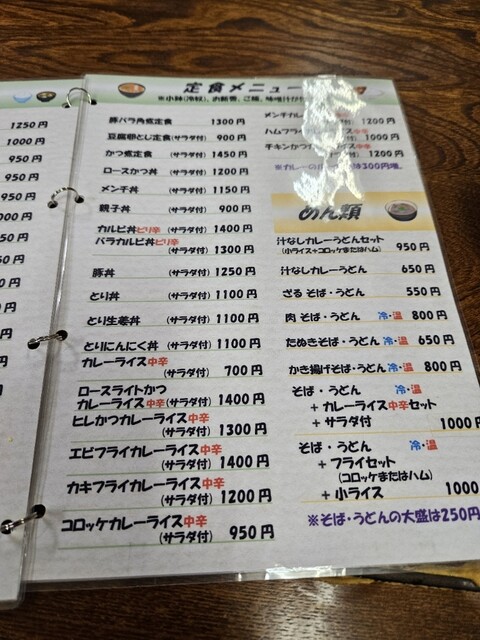 1250円
1000円
950円
950円
950円
定食メニュー
豚バラ角煮定食 1300円
豆腐卵とじ定食(サラダ付) 900円
かつ煮定食 (サラダ付) 1450円
ロースかつ丼 (サラダ付) 1200円
メンチ丼 (サラダ付) 1150円
親子丼 (サラダ付) 900円
カルビ丼ピリ辛 (サラダ付) 1400円
バラカルビ丼ピリ辛
(サラダ付) 1300円
豚丼 (サラダ付) 1250円
とり丼 (サラダ付) 1100円
とり生姜丼 (サラダ付) 1100円
とりにんにく丼 (サラダ付) 1100円
カレーライス中辛
(サラダ付) 700円
ロースライトかつ
カレーライス中辛(サラダ付) 1400円
ヒレかつカレーライス中辛
(サラダ付) 1300円
エビフライカレーライス中辛
(サラダ付) 1400円
カキフライカレーライス中辛
(サラダ付) 1200円
コロッケカレーライス中辛
(サラダ付) 950円
メンチカレー
1200円
ハムフライ 中辛
1000円
チキンかつ 中辛
1200円
300円増。
めん類
汁なしカレーうどんセット
(小ライス+コロッケまたはハム) 950円
汁なしカレーうどん 650円
ざる そば・うどん 550円
肉 そば・うどん 冷・温 800円
たぬきそば・うどん 冷・温 650円
かき揚げそば・うどん 冷・温 800円
そば・うどん 冷・温
+ カレーライス中辛セット
+ サラダ 1000円
そば・うどん 冷・温
+ フライセット
(コロッケまたはハム)
+ 小ライス 1000
※そば・うどんの大盛は250円